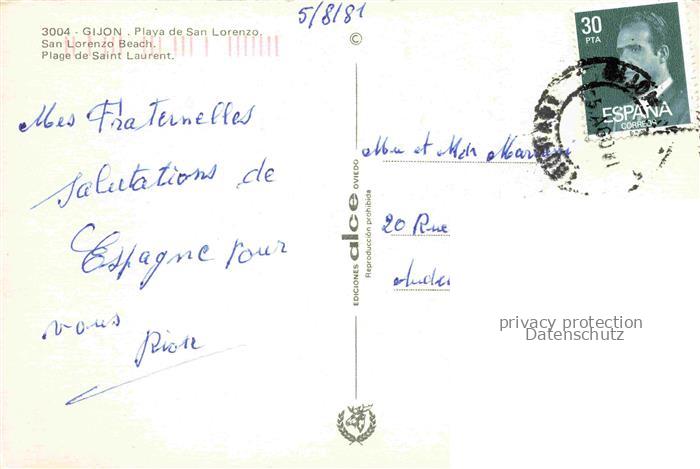 5/8/81
3004 - GIJON . Playa de San Lorenzo.
San Lorenzo Beach.
Plage de Saint Laurent.
©
30
PTA
ESPAÑA
CORREOS
Mes Fraternelles
salutations de
Espagne pour
vous
EDICIONES alce OVIEDO
Reproducción prohibida
20 Rue
privacy protection
Datenschutz